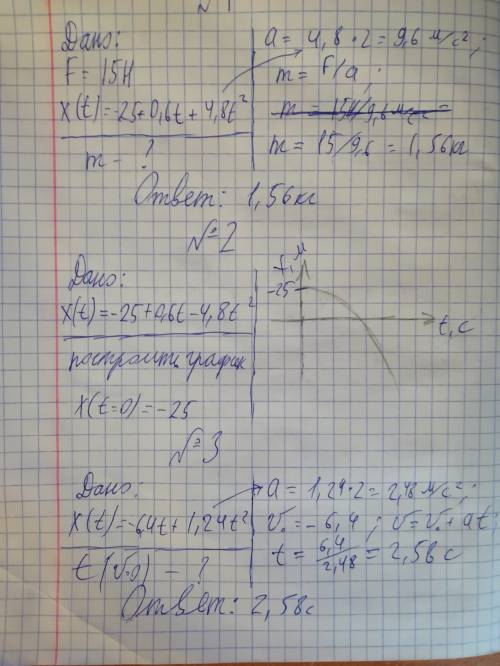 №1
Дано:
F = 15Н
x(t)=-25+0,6t+4,8t²
m - ?
a = 4,8·2 = 9,6 м/с²;
m = F/a;
m = 15Н/9,6 м/с² =
m = 15/9,6 = 1,56кг
Ответ: 1,56кг
№2
Дано:
x(t)=-25+0,6t-4,8t²
построить график
x(t=0)=-25
f, м
-25
t, с
№3
Дано:
x(t)=-6,4t+1,24t²
t(v=0) - ?
a = 1,24·2=2,48 м/с²;
v₀=-6,4; v=v₀+at;
t = 6,4/2,48 = 2,58 с
Ответ: 2,58с